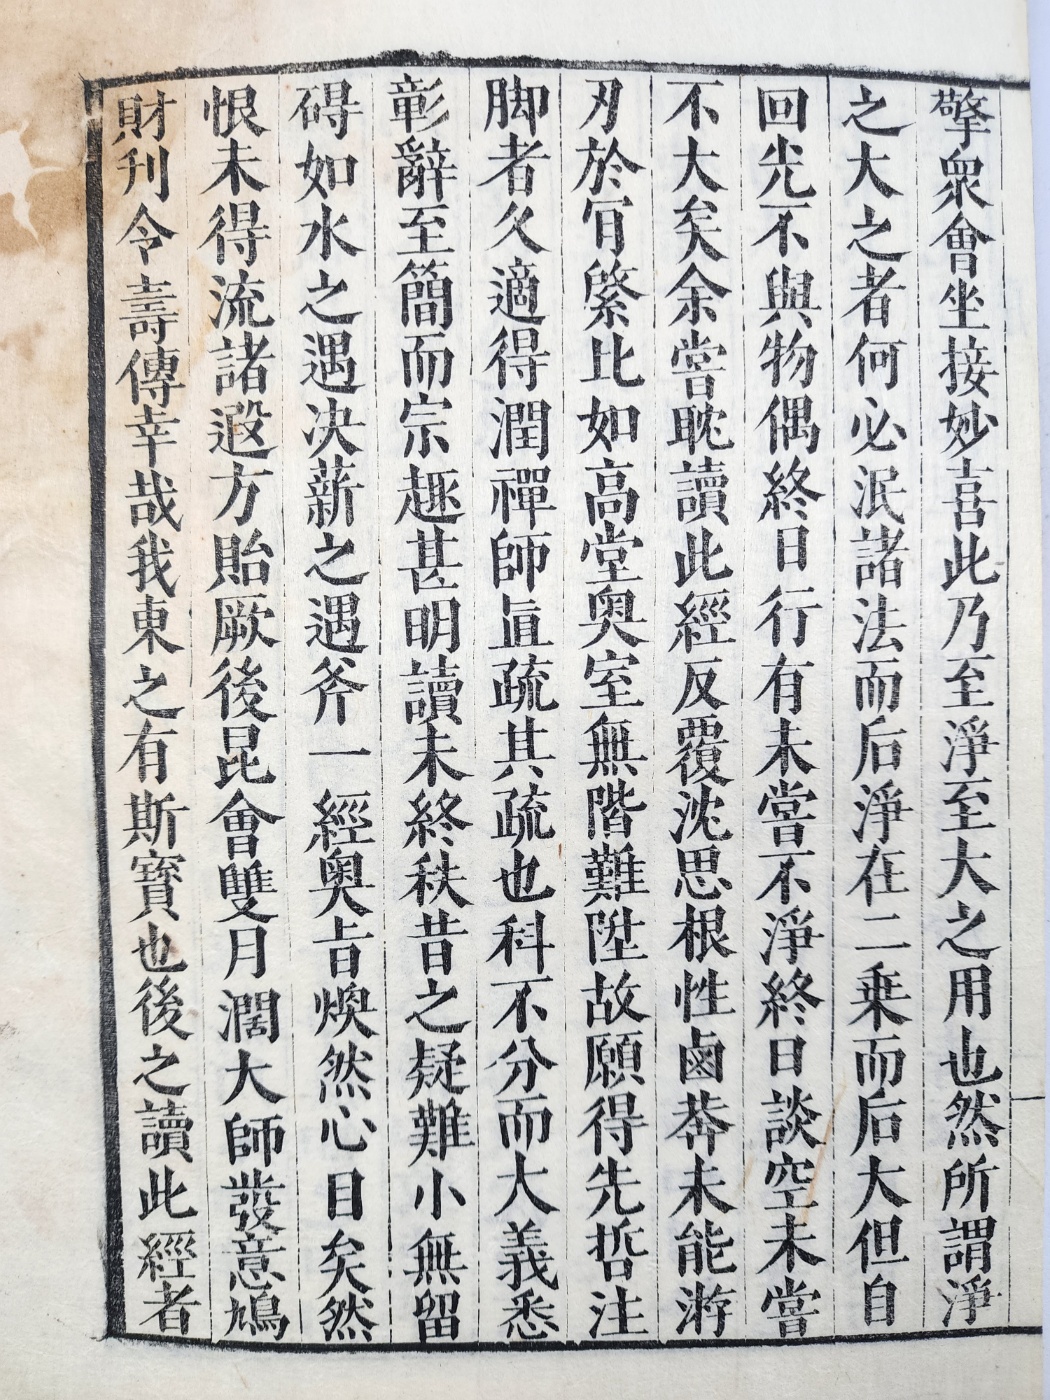 擎眾會坐接妙喜此乃至淨至大之用也然所謂淨
之大之者何必泯諸法而后淨在二乗而后大但自
回光不與物偶終日行有未嘗不淨終日談空未嘗
不大矣余嘗耽讀此經反覆沈思根性鹵莽未能游
刃於肎綮比如高堂奥室無階難陞故願得先哲注
脚者久適得潤禪師直疏其疏也科不分而大義悉
彰辭至簡而宗趣甚明讀未終秩昔之疑難小無留
碍如水之遇决薪之遇斧一經奥旨煥然心目矣然
恨未得流諸遐方貽厥後昆會雙月濶大師發意鳩
財刊令壽傳幸哉我東之有斯寳也後之讀此經者